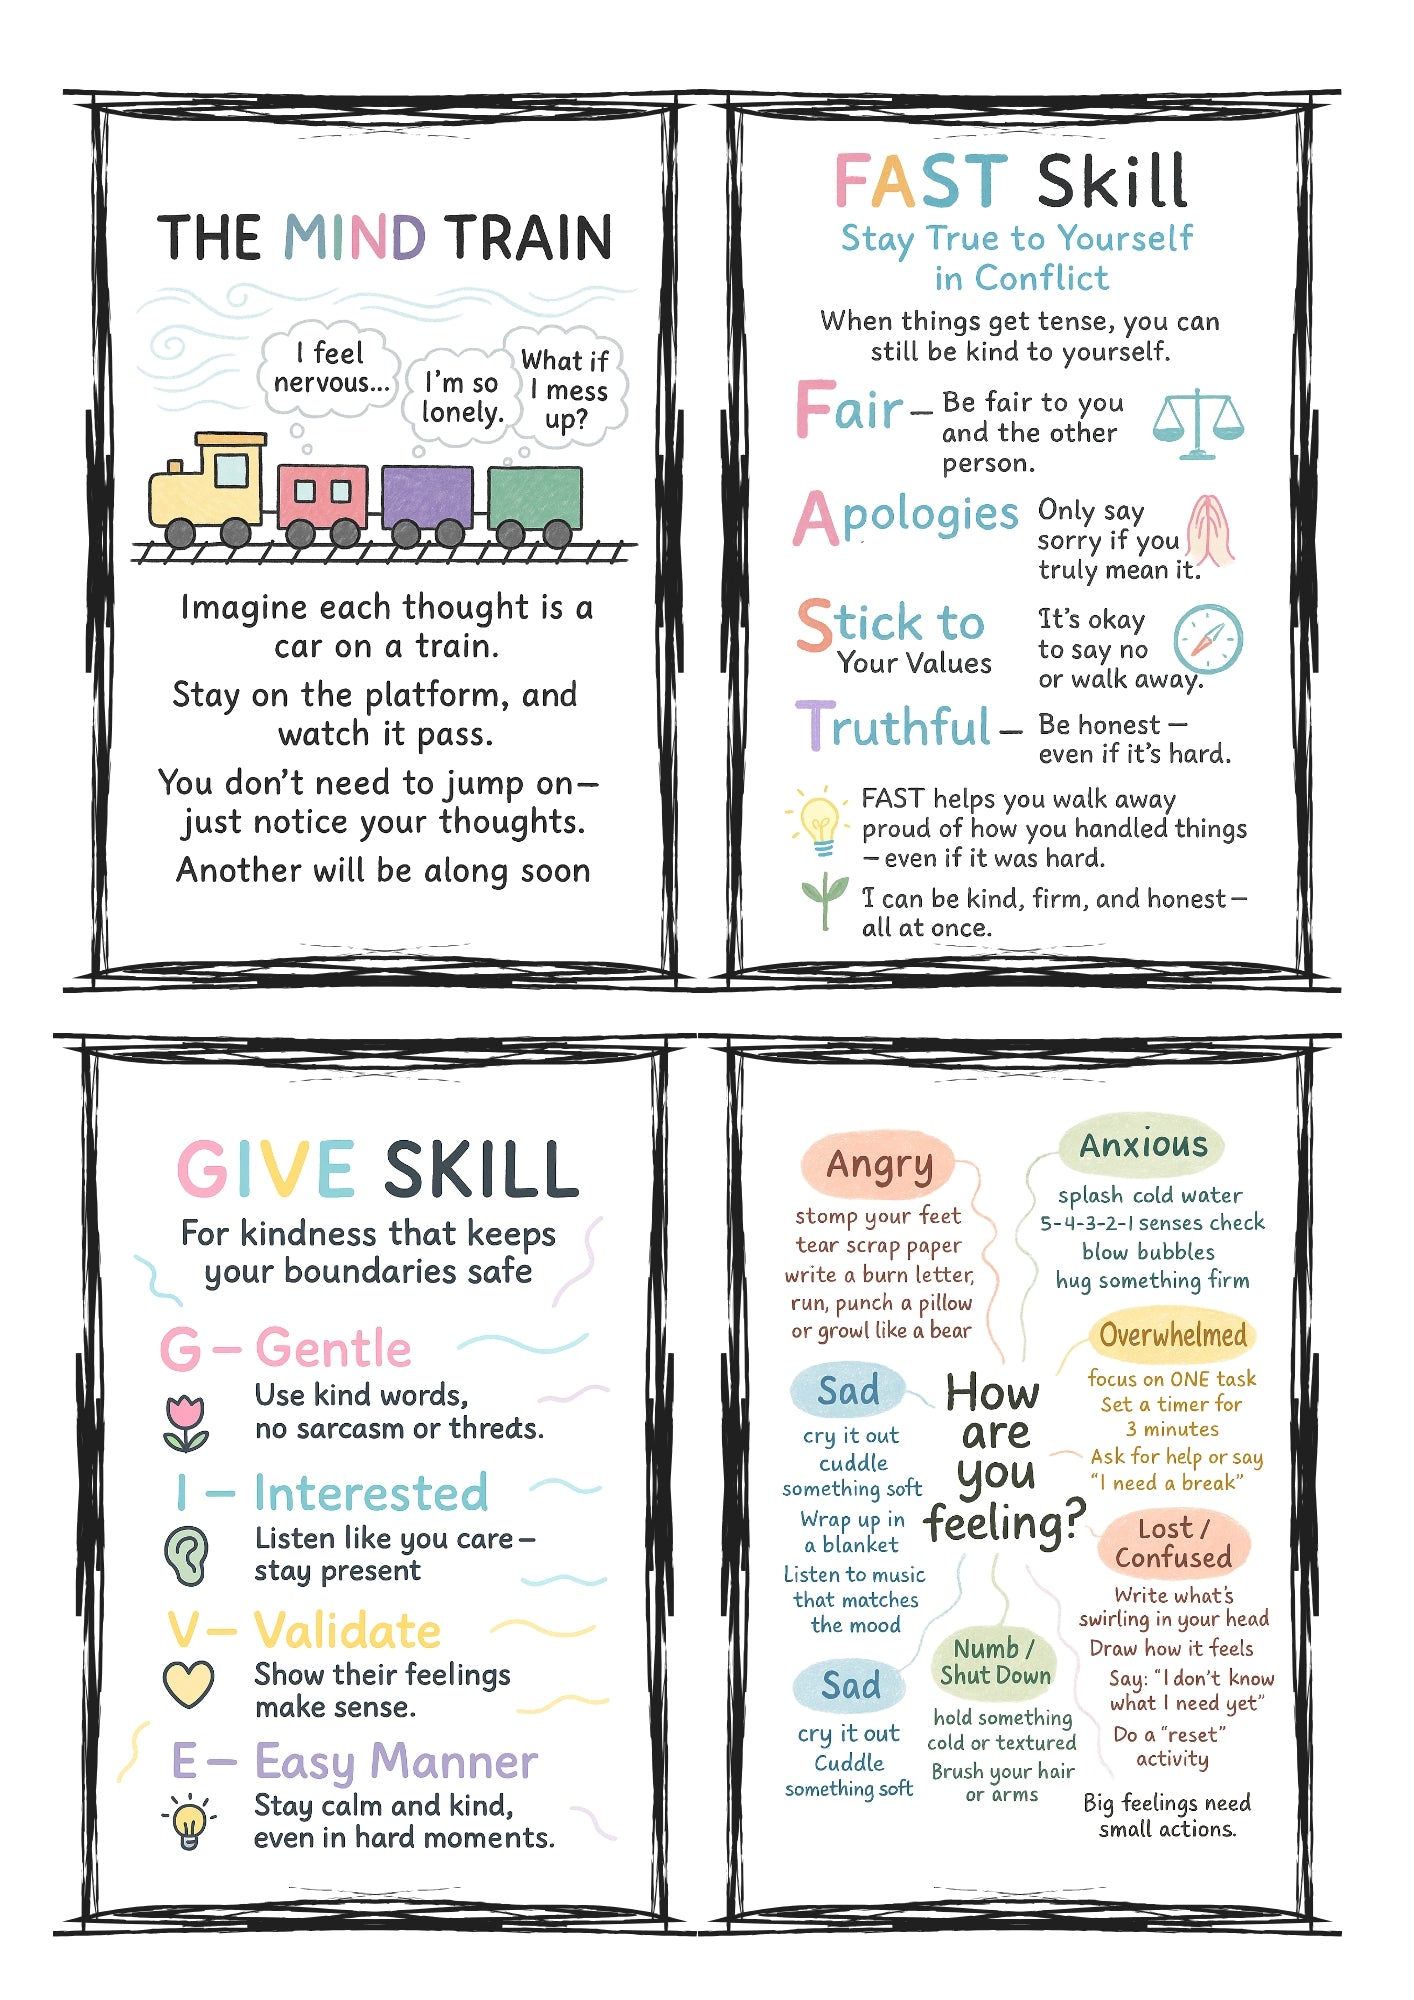 THE MIND TRAIN
I feel
nervous...
I'm so
lonely.
What if
I mess
up?
Imagine each thought is a
car on a train.
Stay on the platform, and
watch it pass.
You don't need to jump on—
just notice your thoughts.
Another will be along soon
FAST Skill
Stay True to Yourself
in Conflict
When things get tense, you can
still be kind to yourself.
Fair — Be fair to you
and the other
person.
Apologies Only say
sorry if you
truly mean it.
Stick to
Your Values
It's okay
to say no
or walk away.
Truthful — Be honest —
even if it's hard.
FAST helps you walk away
proud of how you handled things
— even if it was hard.
I can be kind, firm, and honest—
all at once.
GIVE SKILL
For kindness that keeps
your boundaries safe
G — Gentle
Use kind words,
no sarcasm or threats.
I — Interested
Listen like you care—
stay present
V — Validate
Show their feelings
make sense.
E — Easy Manner
Stay calm and kind,
even in hard moments.
How
are
you
feeling?
Angry
stomp your feet
tear scrap paper
write a burn letter,
run, punch a pillow
or growl like a bear
Anxious
splash cold water
5-4-3-2-1 senses check
blow bubbles
hug something firm
Overwhelmed
focus on ONE task
Set a timer for
3 minutes
Ask for help or say
"I need a break"
Sad
cry it out
cuddle
something soft
Wrap up in
a blanket
Listen to music
that matches
the mood
Lost /
Confused
Write what's
swirling in your head
Draw how it feels
Say: "I don't know
what I need yet"
Do a "reset"
activity
Sad
cry it out
Cuddle
something soft
Numb /
Shut Down
hold something
cold or textured
Brush your hair
or arms
Big feelings need
small actions.